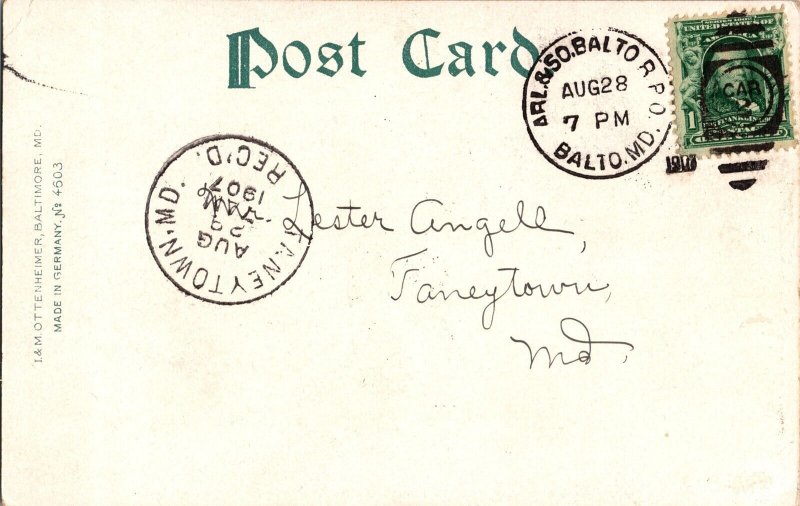 Post Card
ARL.&SO.BALTO R.P.O.
AUG 28
7 PM
BALTO. MD.
1907
SERIES 1902
1
CAR
2
TANEYTOWN, MD.
REC'D.
AUG
29
AM
1907
Lester Angell,
Taneytown,
Md.
I. & M. OTTENHEIMER, BALTIMORE, MD.
MADE IN GERMANY. No 4603